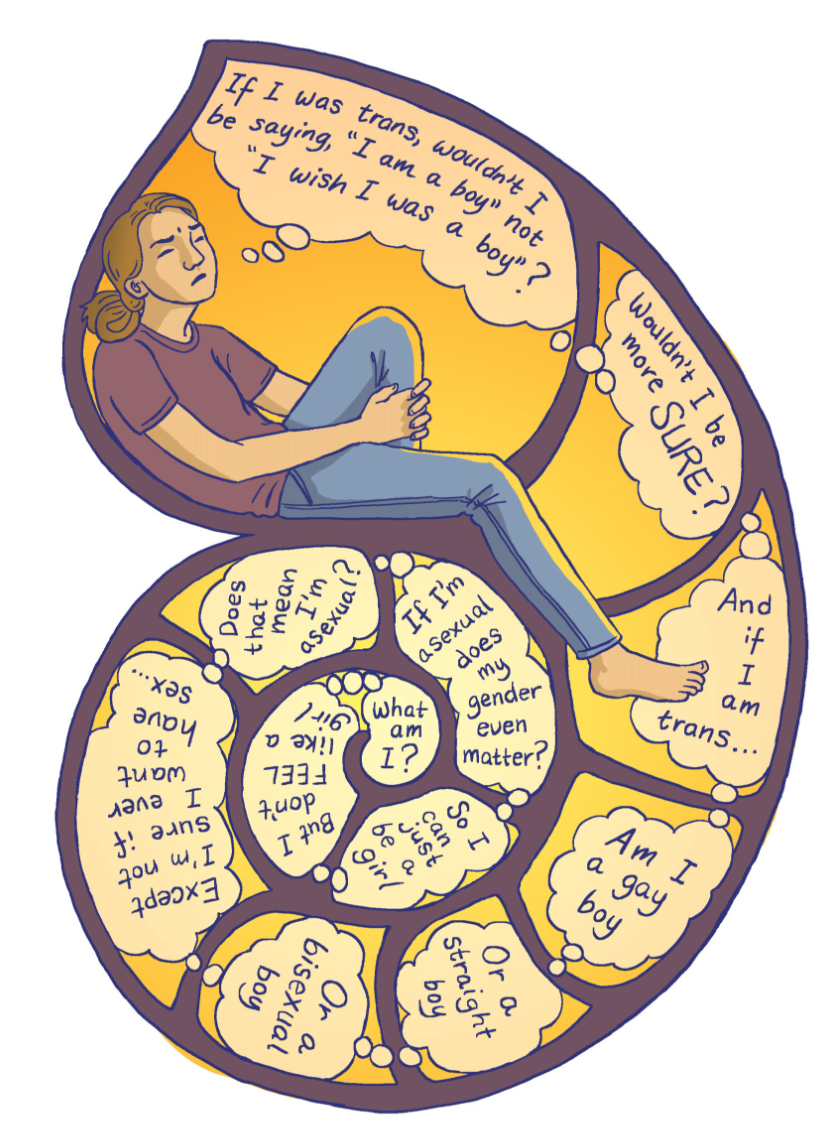 If I was trans, wouldn't I
be saying, "I am a boy" not
"I wish I was a boy"?
Wouldn't I be
more SURE?
And
if
I
am
trans...
Am I
a gay
boy
Or a
straight
boy
Or a
bisexual
boy
Except
I'm not
sure if
I ever
want
to
have
sex...
Does
that
mean
I'm
asexual?
If I'm
asexual
does
my
gender
even
matter?
So I
can
just
be a
girl
But I
don't
FEEL
like a
girl
What
am
I?